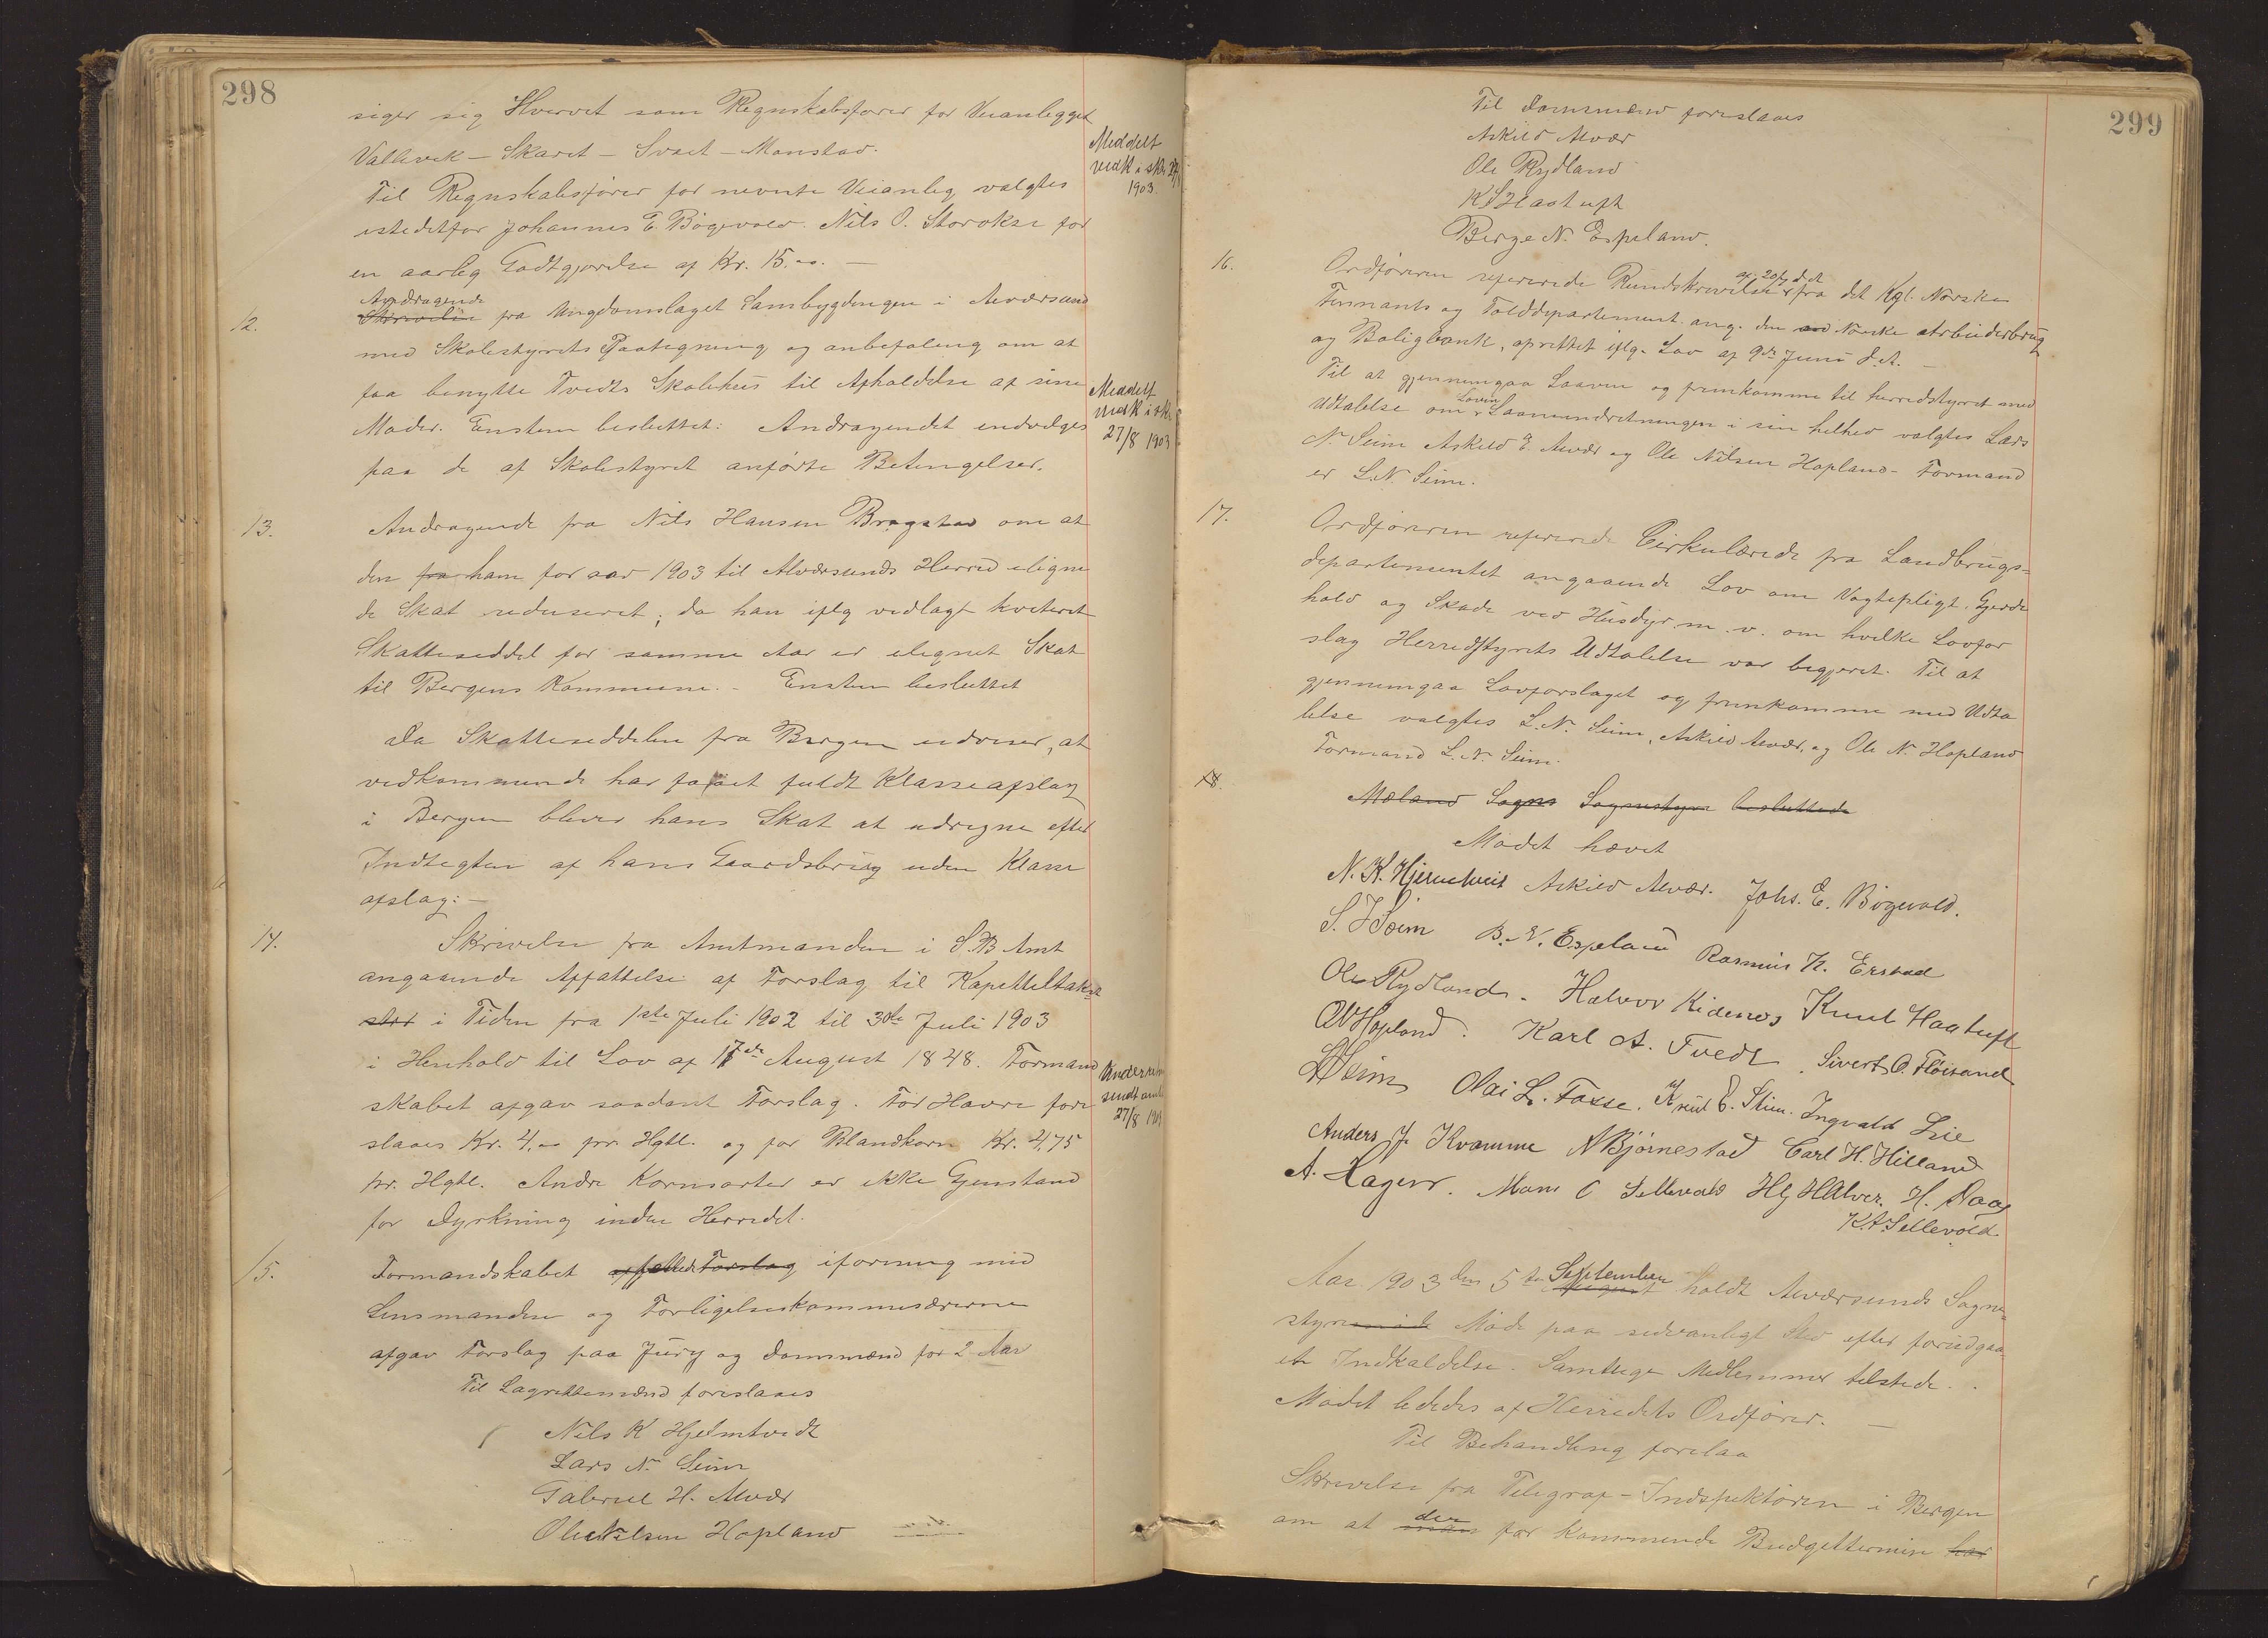 298
siger sig Hvervet som Regnskabsfører for Veianlegget
Vallevik - Skaret - Svaet - Monstad.
Meddelt
vedk i skr 27/8
1903
Til Regnskabsfører for nevnte Veianleg valgtes
istedetfor Johannes E. Bøgevold. Nils O. Storokse for
en aarleg Godtgjørelse af Kr. 15.00. —
12.
Andragende
Skrivelse fra Ungdomslaget Sambygdingen i Alversund
med Skolestyrets Paategning og anbefaling om at
faa benytte Tvedts Skolehus til Afholdelse af sine
Møder. Enstem besluttet: Andragendet indvilges
paa de af Skolestyret anførte Betingelser.
Meddelt
vedk i skr
27/8 1903
13.
Andragende fra Nils Hansen Brogstad om at
den fra ham for aar 1903 til Alversunds Herred iligne
de Skat reduseret, da han iflg vedlagt kviteret
Skatteseddel for samme Aar er ilignet Skat
til Bergens Kommune. - Enstem besluttet
Da Skatteseddelen fra Bergen udviser, at
vedkommende har faaet fuldt Klasseafslag
i Bergen bliver hans Skat at udregne efter
Indtegten af hans Gaardsbrug uden Klasse
afslag: —
14.
Skrivelse fra Amtmanden i S.B. Amt
angaaende Affattelse af Forslag til Kapitteltakst
ster i Tiden fra 1ste Juli 1902 til 30te Juli 1903
i Henhold til Lov af 17de August 1848. Formand
skabet afgav saadant Forslag. For Havre fore
slaaes Kr. 4.00 pr. Hgtl. og for Blandkorn Kr. 4,75
pr. Hgtl. Andre Kornsorter er ikke Gjenstand
for Dyrkning inden Herredet.
27/8 1903
15.
Formandskabet affattede Forslag iforening med
Lensmanden og Forligelseskommisærerne
afgav Forslag paa Jury og Domsmænd for 2 Aar
Til Lagrettemænd foreslaaes
Nils K Hjelmtvedt
Lars N. Seim
Gabriel H. Alver
Ole Nilsen Hopland
299
Til Domsmænd foreslaaes
Askild Alvær
Ole Rydland
K S Haatuft
Berge N. Espeland.
16.
Ordføreren refererede Rundskrivelse af 20/7 d.A. fra det Kgl. Norske
Finnants og Tolddepartement ang. den Norske Arbeiderbrug
og Boligbank, oprettet iflg. Lov af 9de Juni d.A. —
Til at gjennemgaa Loaven og fremkomme til herredstyret med
Udtalelse om Loven Laaneindretningen i sin helhed valgtes Lars
N. Seim Askild E. Alvær og Ole Nilsen Hopland - Formand
er L.N. Seim.
17.
Ordføreren refererede Cirkulærede fra Landbrugs-
departementet angaaende Lov om Vogtepligt, Gjerde
hold og Skade ved Husdyr m. v. om hvilke Lovfor
slag Herredstyrets Udtalelse var begjæret. Til at
gjennemgaa Lovforslaget og fremkomme med Udta
lelse valgtes L. N. Seim, Askild Alvær, og Ole N. Hopland
Formand L. N. Seim.
18.
Mæland Sogns Sognestyre besluttede
Mødet hævet
N. K. Hjelmtveit Askild Alvær. Johs. E. Bøgevold.
S. J Seim B. N. Espeland Rasmus K. Erstad
Ole Rydland. Halvor Kidenes Knut Haatuft
O N Hopland. Karl A. Tvedt. Sivert O. Fløisand
L N Seim Olai L. Fosse. Knut E. Stim. Ingvald Lie
Anders J. Kvamme N Bjørnestad Carl H. Hilland
A. Hagen. Mons O Sellevold HG HAlver. H. Naas
K.A. Sellevold.
Aar 1903 den 5te September August holdt Alversunds Sogne
styremøde Møde paa sedvanligt Sted efter forudgaa
ende Indkaldelse. Samtlige Medlemmer tilstede.
Mødet lededes af Herredets Ordfører. —
Til Behandling forelaa
Skrivelse fra Telegraf-Indspektøren i Bergen
om at der for kommende Budgettermin har